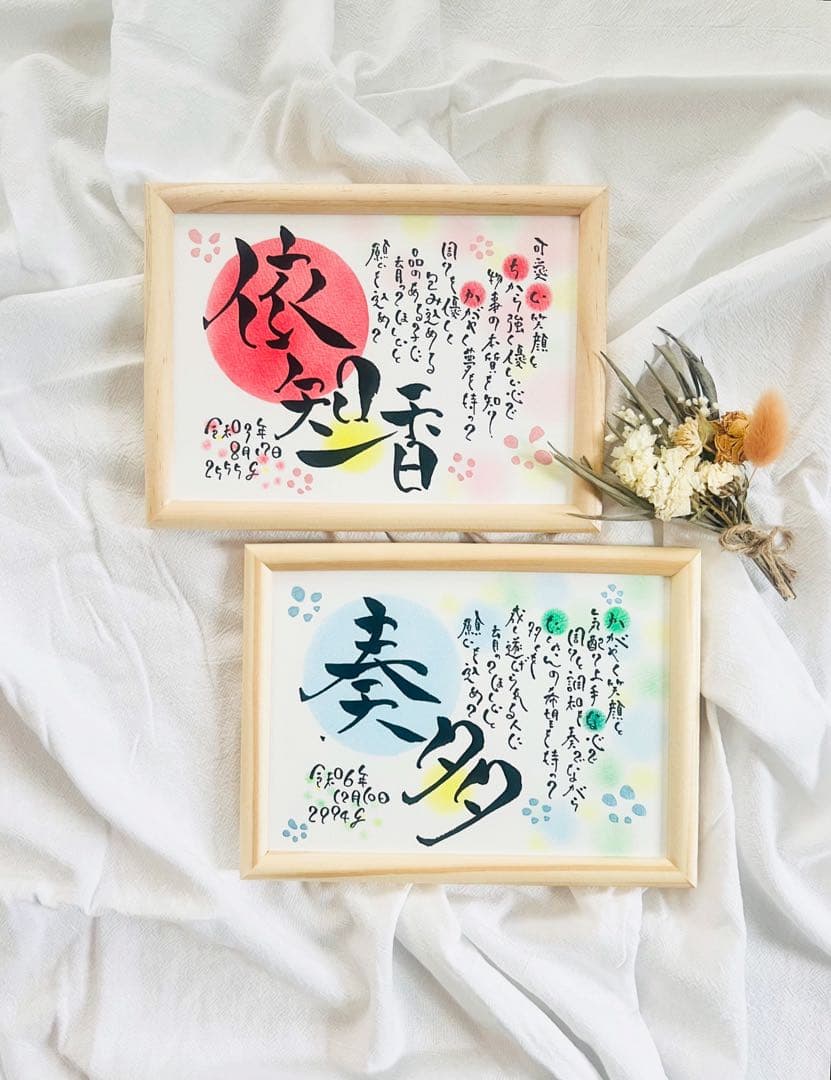 依知香
可愛い笑顔と
ちから強く優しい心で
物事の本質を知り
かがやく夢を持って
周りを優しく
包み込める
品のある子に
育ってほしいと
願いを込めて
令和07年
8月17日
2555g
奏多
かがやく笑顔と
気配り上手な心で
周りと調和を奏でながら
たくさんの希望を持って
多くを
成し遂げられる人に
育ってほしいと
願いを込めて
令和06年
12月10日
2994g